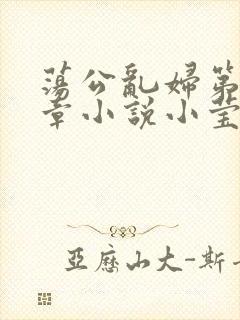 蕩公亂婦第
章小説小莹
亞歷山大-斯